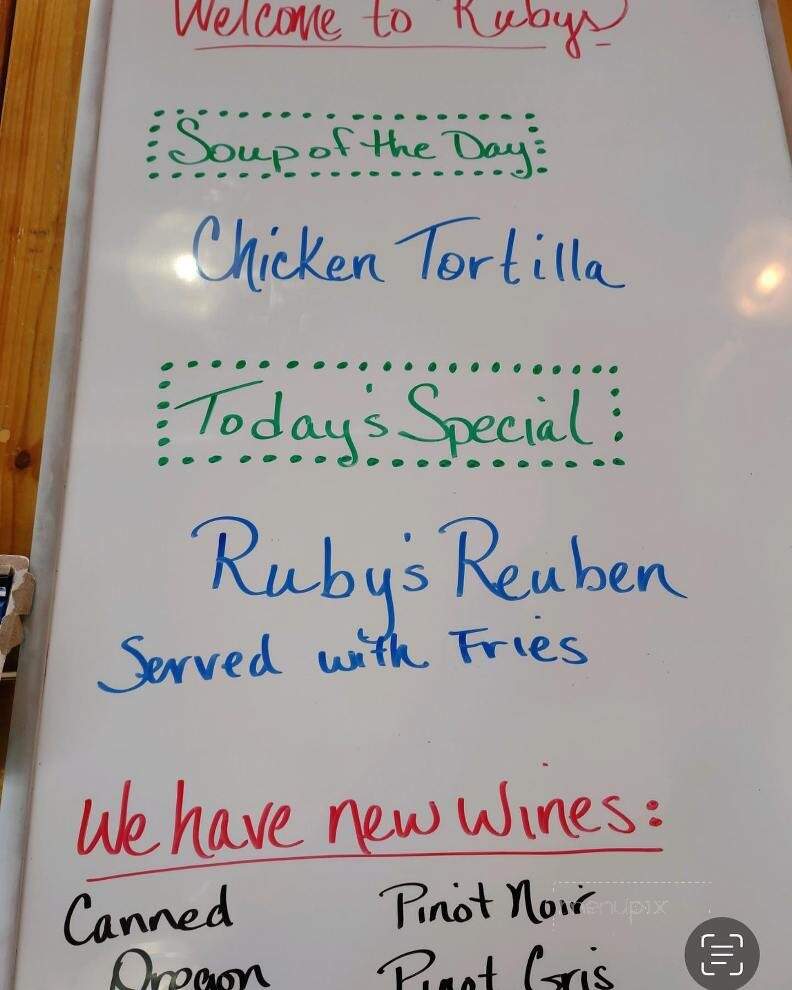 Welcome to Rubys
Soup of the Day
Chicken Tortilla
Today's Special
Ruby's Reuben
Served with Fries
We have new wines:
Canned Pinot Noir
menupix
Oregon Pinot Gris